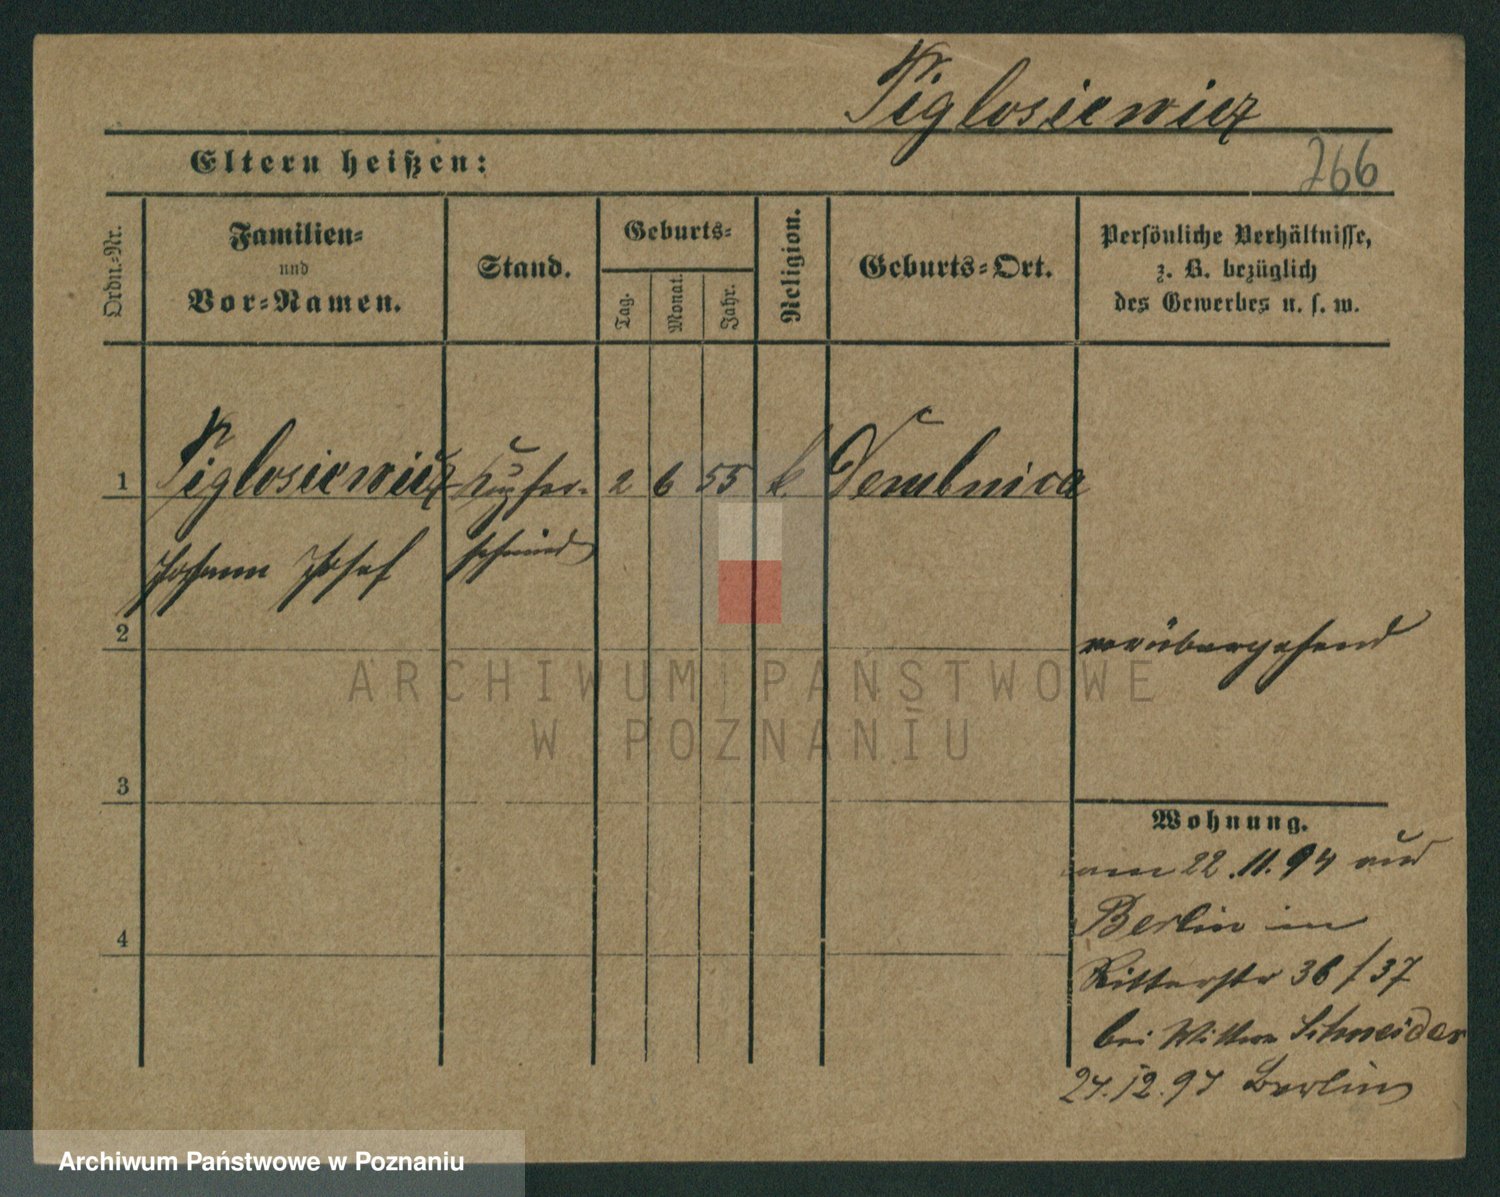 Piglosiewicz
Eltern heißen:
266
Ordn.-Nr.
Familien-
und
Vor-Namen.
Stand.
Geburts-
Tag.
Monat.
Jahr.
Religion.
Geburts-Ort.
Persönliche Verhältnisse,
z. B. bezüglich
des Gewerbes u. s. w.
1 Piglosiewicz Kupfer- 2 6 55 k. Dembnica
Johann Josef schmied
2
vorübergehend
ARCHIWUM PAŃSTWOWE
W POZNANIU
3
Wohnung.
am 22.11.94 aus
Berlin in
4
Ritterstr 36/37
bei Wittwe Schneider
24.12.94 Berlin
Archiwum Państwowe w Poznaniu